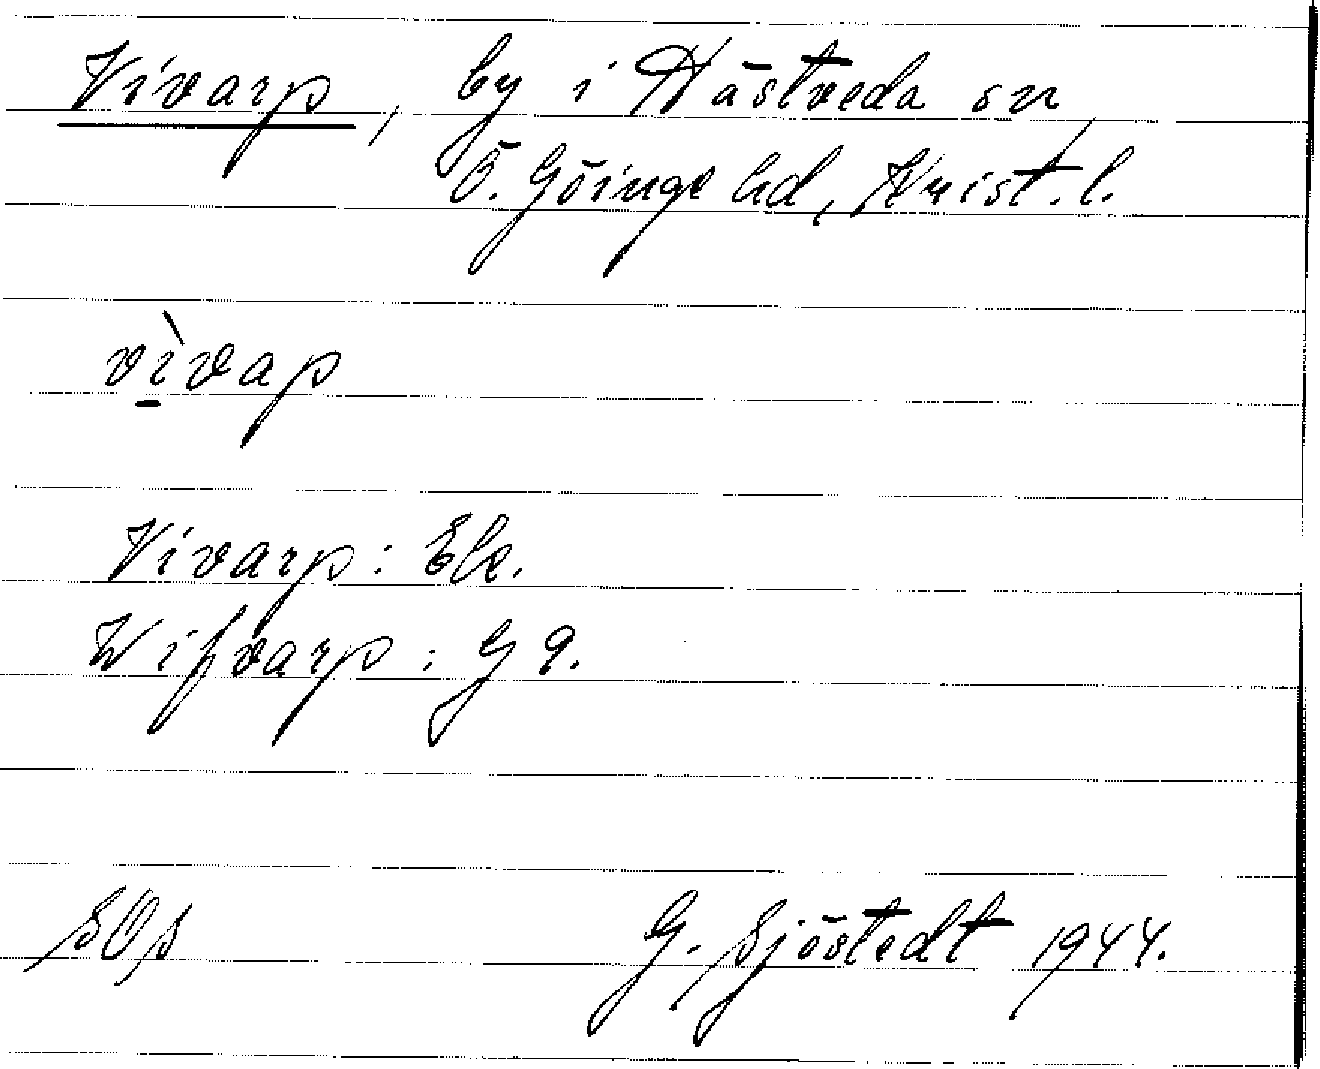 Vivarp, by i Hästveda sn
Ö. Göinge hd, Krist. l.
vì̱vap
Vivarp: Ek.
Wifvarp: G 9.
SOs
G. Sjöstedt 1944.